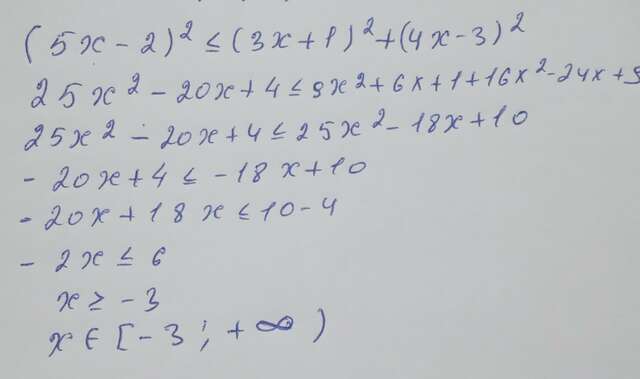 (5x-2)² ≤ (3x+1)² + (4x-3)²
25x² - 20x + 4 ≤ 9x² + 6x + 1 + 16x² - 24x + 9
25x² - 20x + 4 ≤ 25x² - 18x + 10
- 20x + 4 ≤ -18x + 10
- 20x + 18x ≤ 10 - 4
- 2x ≤ 6
x ≥ -3
x ∈ [-3; +∞)